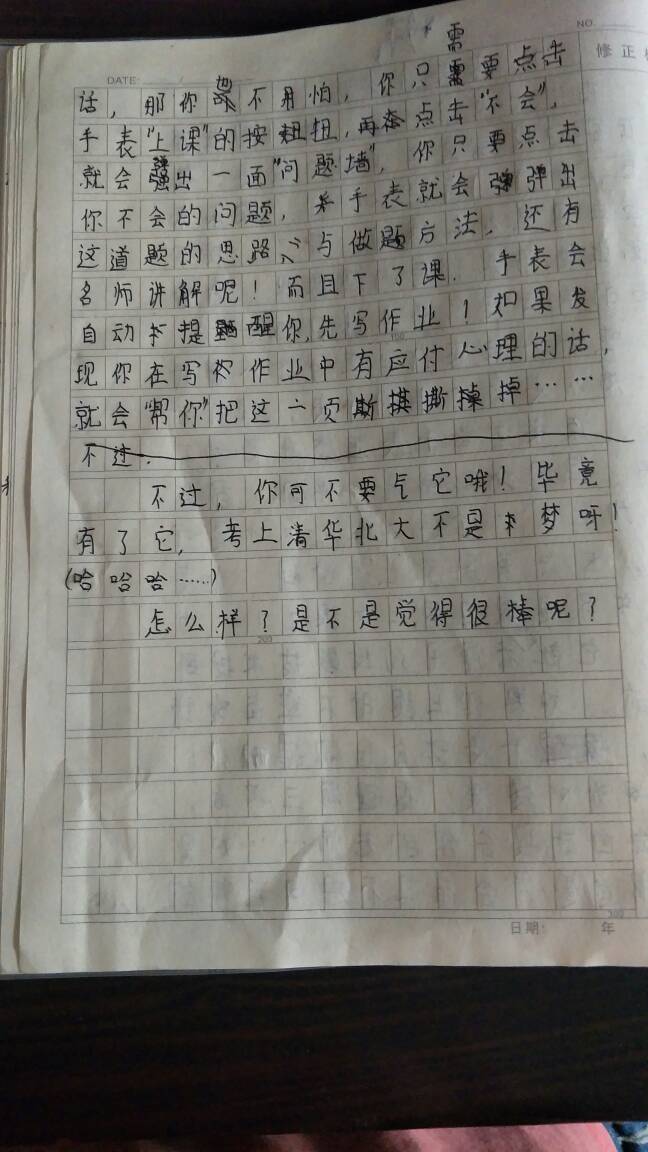 NO.
修正
DATE:
需
话，那你也不用怕，你只要点击
手表"上课"的按钮，再点击"不会"，
就会弹出一面"问题墙"，你只要点击
你不会的问题，手表就会弹出
这道题的思路与做题方法，还有
名师讲解呢！而且下了课．手表会
自动提醒你，先写作业！如果发
现你在写作业中有应付心理的话，
就会"帮你"把这一页撕掉……
不过．
不过，你可不要气它哦！毕竟
有了它，考上清华北大不是梦呀！
(哈哈哈……)
怎么样？是不是觉得很棒呢？
200
日期： 年